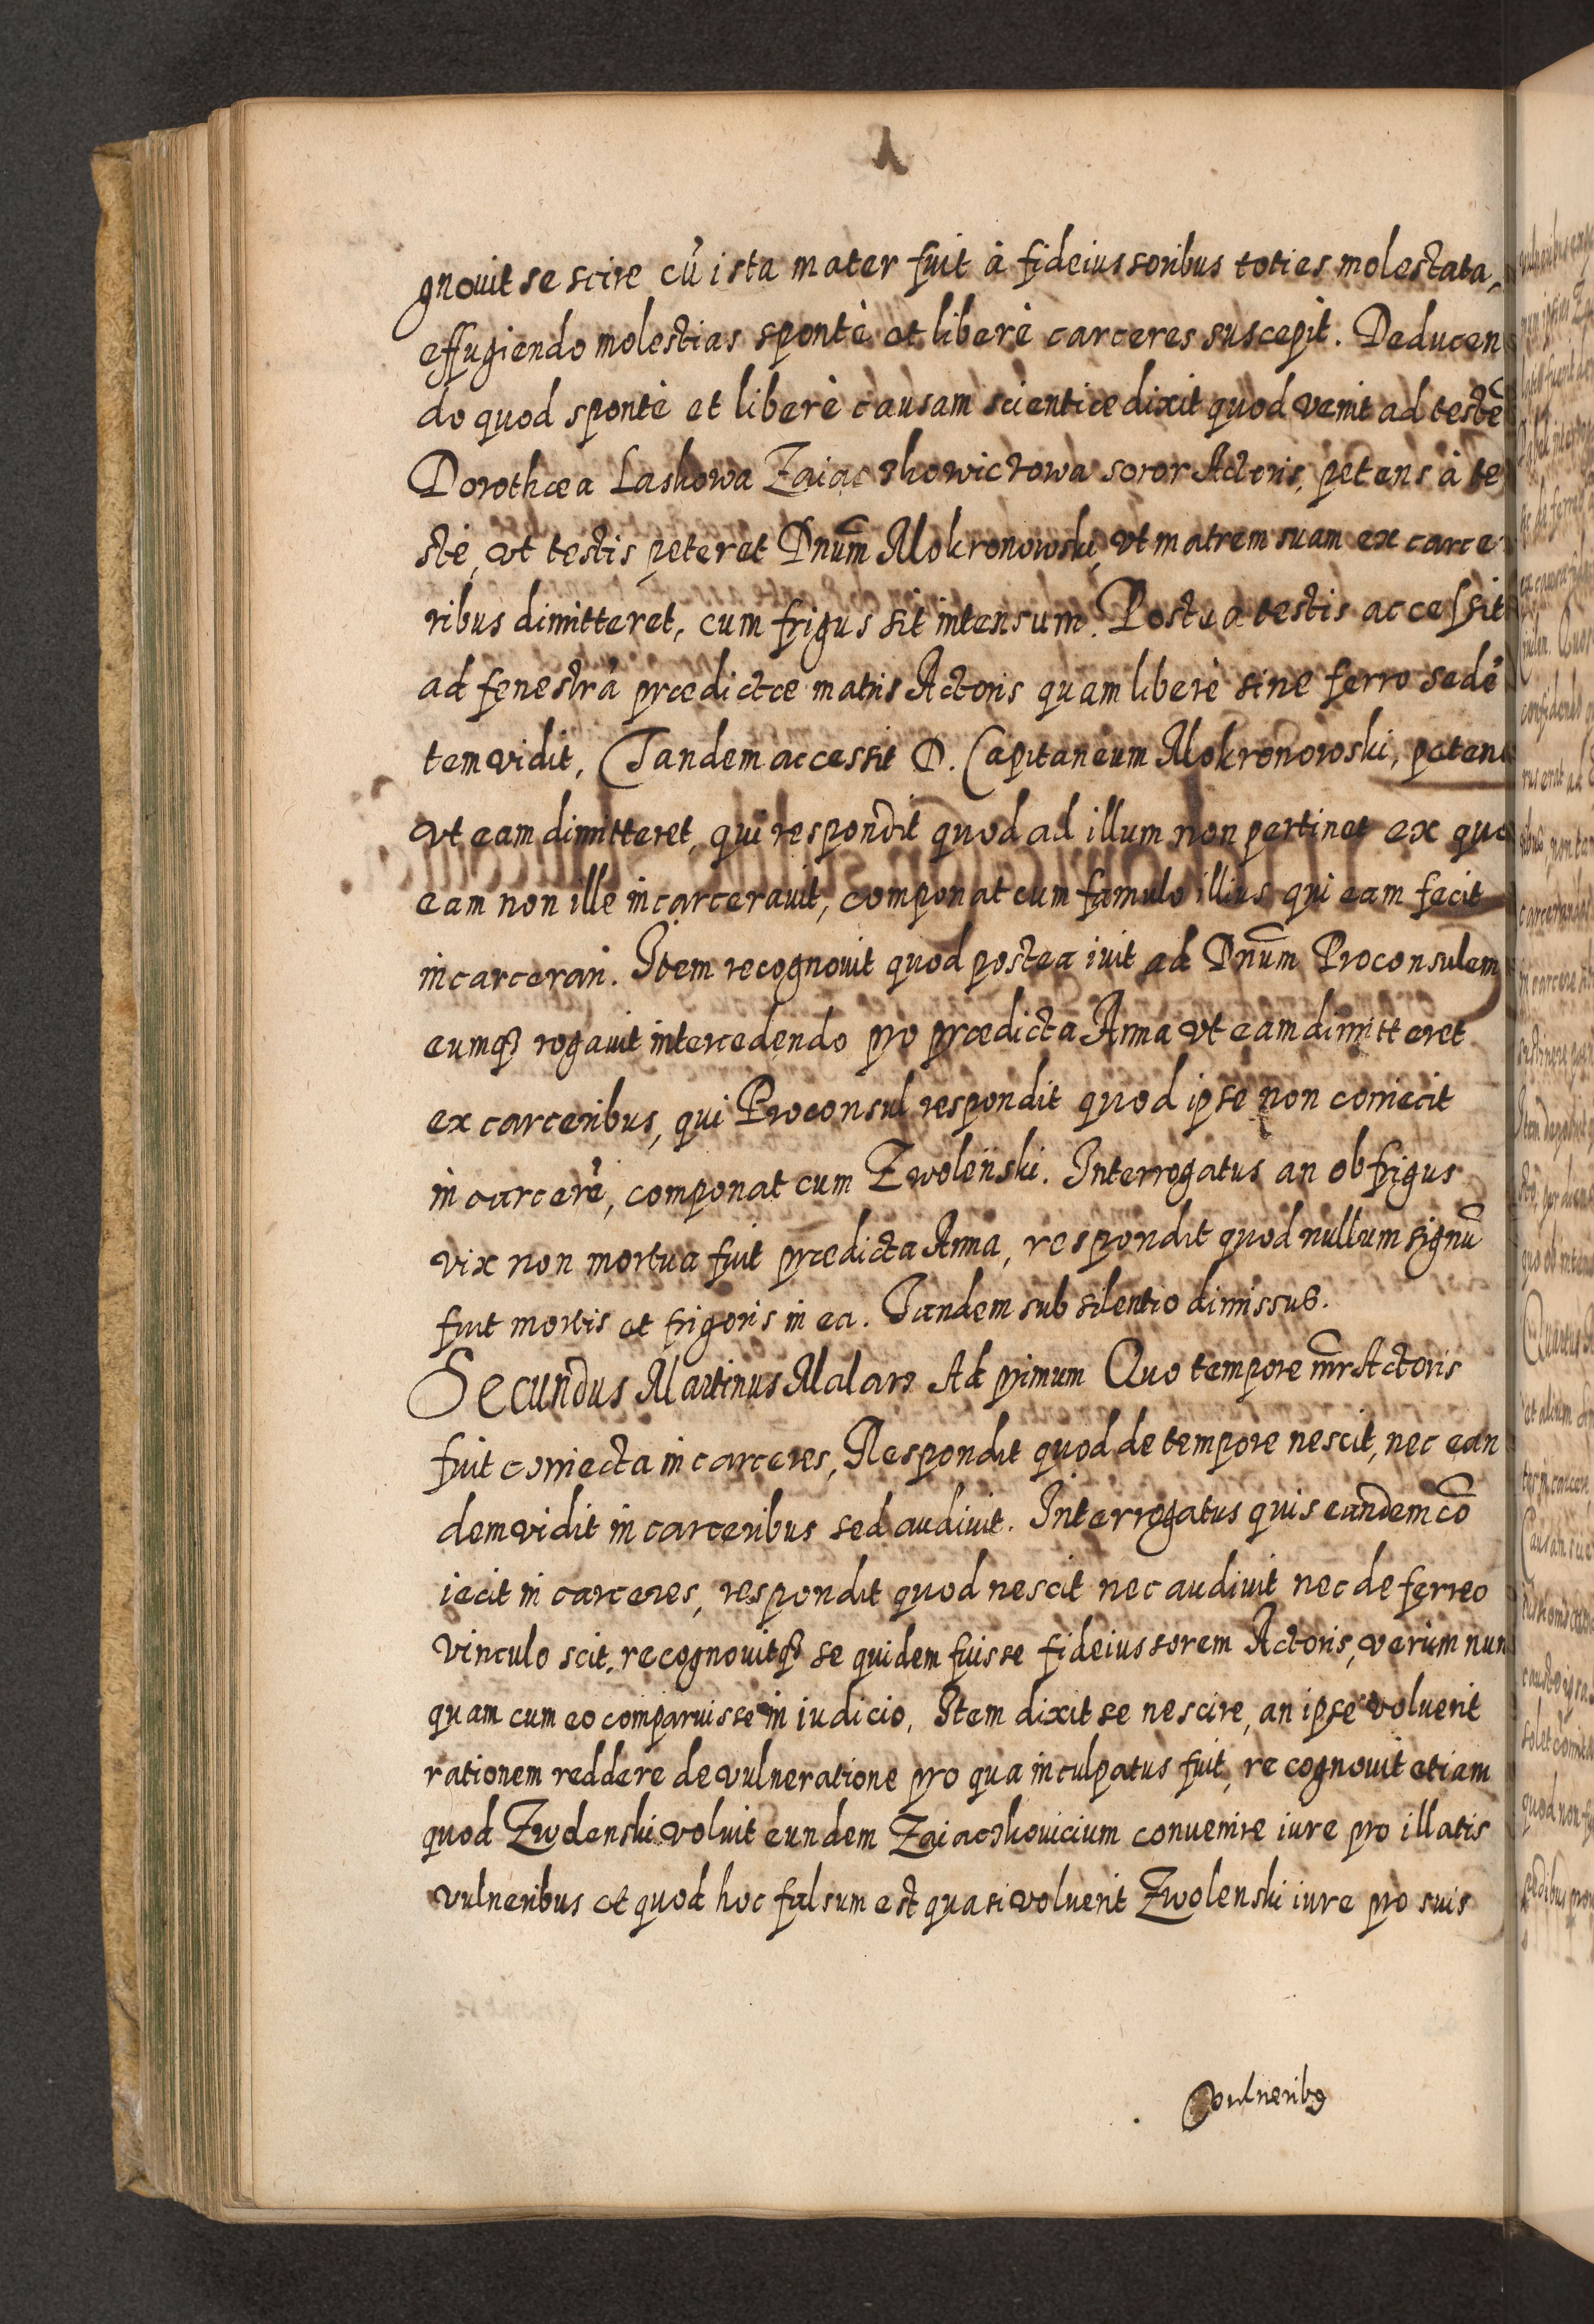 gnouit se scire cū ista mater fuit à fideiussoribus toties molestata,
effugiendo molestias spontè et liberè carceres suscepit. Deducen
do quod spontè et liberè causam scientiæ dixit quod venit ad testē
Dorothæa Laskowa Zaiaczkowiczowa soror Actoris, petens à te
ste, vt testis peteret Dnūm Mokronowski, vt matrem suam ex carce
ribus dimitteret, cum frigus sit intensum. Postea testis accessit
ad fenestrā prædictæ matris Actoris quam liberè sine ferro sedē
tem vidit, Tandem accessit D. Capitaneum Mokronowski, petens
vt eam dimitteret, qui respondit quod ad illum non pertinet ex quo
eam non ille incarcerauit, componat cum famulo illius qui eam fecit
incarcerari. Item recognouit quod postea iuit ad Dnūm Proconsulem
eumqꝫ rogauit intercedendo pro prædicta Anna vt eam dimitteret
ex carceribus, qui Proconsul respondit quod ipse non coniecit
in carcerē, componat cum Zwolenski. Interrogatus an ob frigus
vix non mortua fuit prædicta Anna, respondit quod nullum signū
fuit mortis et frigoris in ea. Tandem sub silentio dimissus.
Secundus Martinus Malarz Ad primum Quo tempore mr̄ Actoris
fuit coniecta in carceres, Respondit quod de tempore nescit, nec ean
dem vidit in carceribus sed audiuit. Interrogatus quis eandem cō
iecit in carceres, respondit quod nescit nec audiuit nec de ferreo
vinculo scit, recognouitqꝫ se quidem fuisse fideiussorem Actoris, verùm nun
quam cum eo comparuisse in iudicio, Item dixit se nescire, an ipse voluerit
rationem reddere de vulneratione pro qua inculpatus fuit, recognouit etiam
quod Zwolenski voluit eundem Zaiaczkouicium conuenire iure pro illatis
vulneribus et quod hoc falsum est quasi voluerit Zwolenski iure pro suis
vulneribꝯ